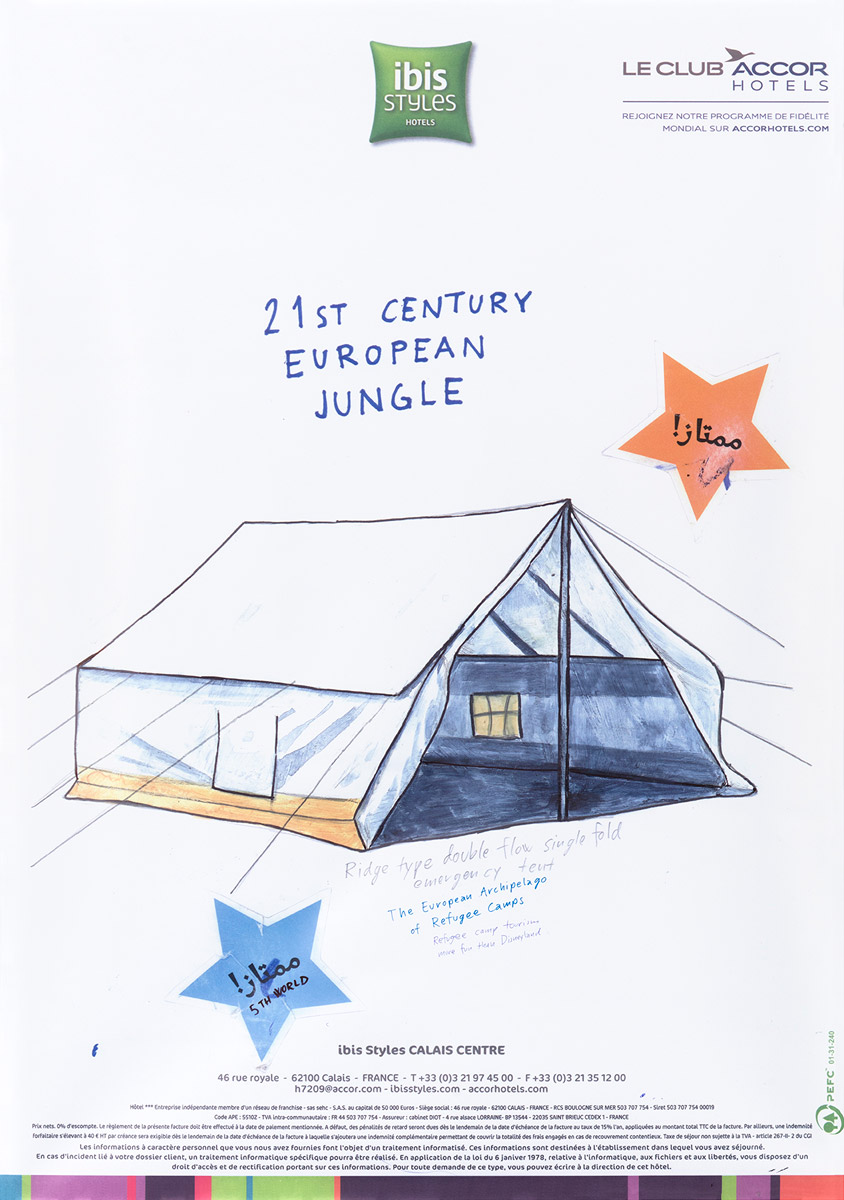 ibis
STYLES
HOTELS
LE CLUB ACCOR
HOTELS
REJOIGNEZ NOTRE PROGRAMME DE FIDÉLITÉ
MONDIAL SUR ACCORHOTELS.COM
21ST CENTURY
EUROPEAN
JUNGLE
ممتاز!
Ridge type double flow single fold
emergency tent
The European Archipelago
of Refugee Camps
Refugee camp tourism
more fun than Disneyland
ممتاز!
5TH WORLD
ibis Styles CALAIS CENTRE
46 rue royale - 62100 Calais - FRANCE - T +33 (0)3 21 97 45 00 - F +33 (0)3 21 35 12 00
h7209@accor.com - ibisstyles.com - accorhotels.com
Hôtel *** Entreprise indépendante membre d'un réseau de franchise - sas sehc - S.A.S. au capital de 50 000 Euros - Siège social : 46 rue royale - 62100 CALAIS - FRANCE - RCS BOULOGNE SUR MER 503 707 754 - Siret 503 707 754 00019
Code APE : 5510Z - TVA intra-communautaire : FR 44 503 707 754 - Assureur : cabinet DIOT - 4 rue alsace LORRAINE- BP 13544 - 22035 SAINT BRIEUC CEDEX 1 - FRANCE
Prix nets. 0% d'escompte. Le règlement de la présente facture doit être effectué à la date de paiement mentionnée. A défaut, des pénalités de retard seront dues dès le lendemain de la date d'échéance de la facture au taux de 15% l'an, appliquées au montant total TTC de la facture. Par ailleurs, une indemnité
forfaitaire s'élevant à 40 € HT par créance sera exigible dès le lendemain de la date d'échéance de la facture à laquelle s'ajoutera une indemnité complémentaire permettant de couvrir la totalité des frais engagés en cas de recouvrement contentieux. Taxe de séjour non sujette à la TVA - article 267-II- 2 du CGI
Les informations à caractère personnel que vous nous avez fournies font l'objet d'un traitement informatisé. Ces informations sont destinées à l'établissement dans lequel vous avez séjourné.
En cas d'incident lié à votre dossier client, un traitement informatique spécifique pourra être réalisé. En application de la loi du 6 janvier 1978, relative à l'informatique, aux fichiers et aux libertés, vous disposez d'un
droit d'accès et de rectification portant sur ces informations. Pour toute demande de ce type, vous pouvez écrire à la direction de cet hôtel.
PEFC 01-31-240